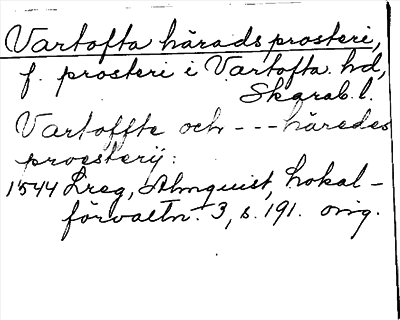 Vartofta härads prosteri,
f. prosteri i Vartofta hd,
Skarab. l.
Vartoffte och --- häredes
proesterij:
1544 Lreg, Almquist, Lokal-
förvaltn. 3, s. 191. orig.